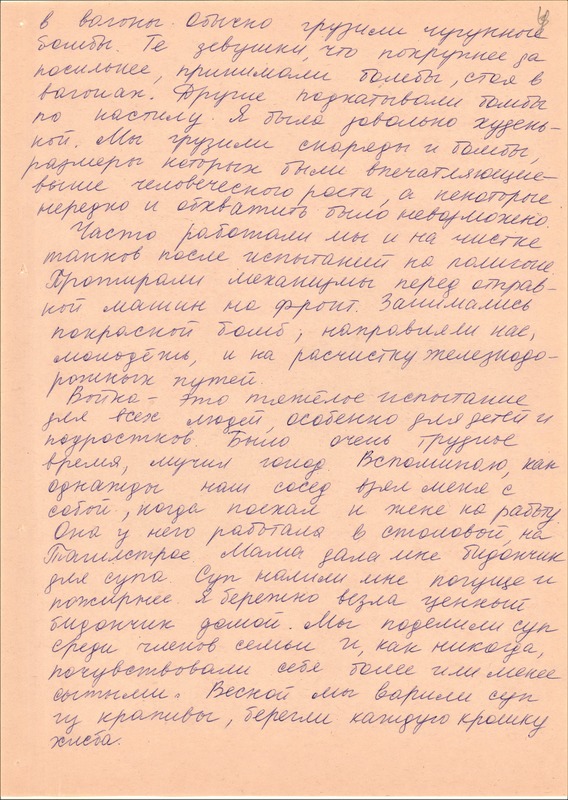 4
в вагоны. Обычно грузили чугунные
бомбы. Те девушки, что покрупнее да
посильнее, принимали бомбы, стоя в
вагонах. Другие подкатывали бомбы
по настилу. Я была довольно худень-
кой. Мы грузили снаряды и бомбы,
размеры которых были впечатляющие -
выше человеческого роста, а некоторые
нередко и обхватить было невозможно.
Часто работали мы и на чистке
танков после испытаний на полигоне.
Протирали механизмы перед отправ-
кой машин на фронт. Занимались
покраской бомб; направляли нас,
молодёжь, и на расчистку железнодо-
рожных путей.
Война - это тяжёлое испытание
для всех людей, особенно для детей и
подростков. Было очень трудное
время, мучил голод. Вспоминаю, как
однажды наш сосед взял меня с
собой, когда поехал к жене на работу.
Она у него работала в столовой, на
Тагилстрое. Мама дала мне бидончик
для супа. Суп налили мне погуще и
пожирнее. Я бережно везла ценный
бидончик домой. Мы поделили суп
среди членов семьи и, как никогда,
почувствовали себя более или менее
сытыми. Весной мы варили суп
из крапивы, берегли каждую крошку
хлеба.